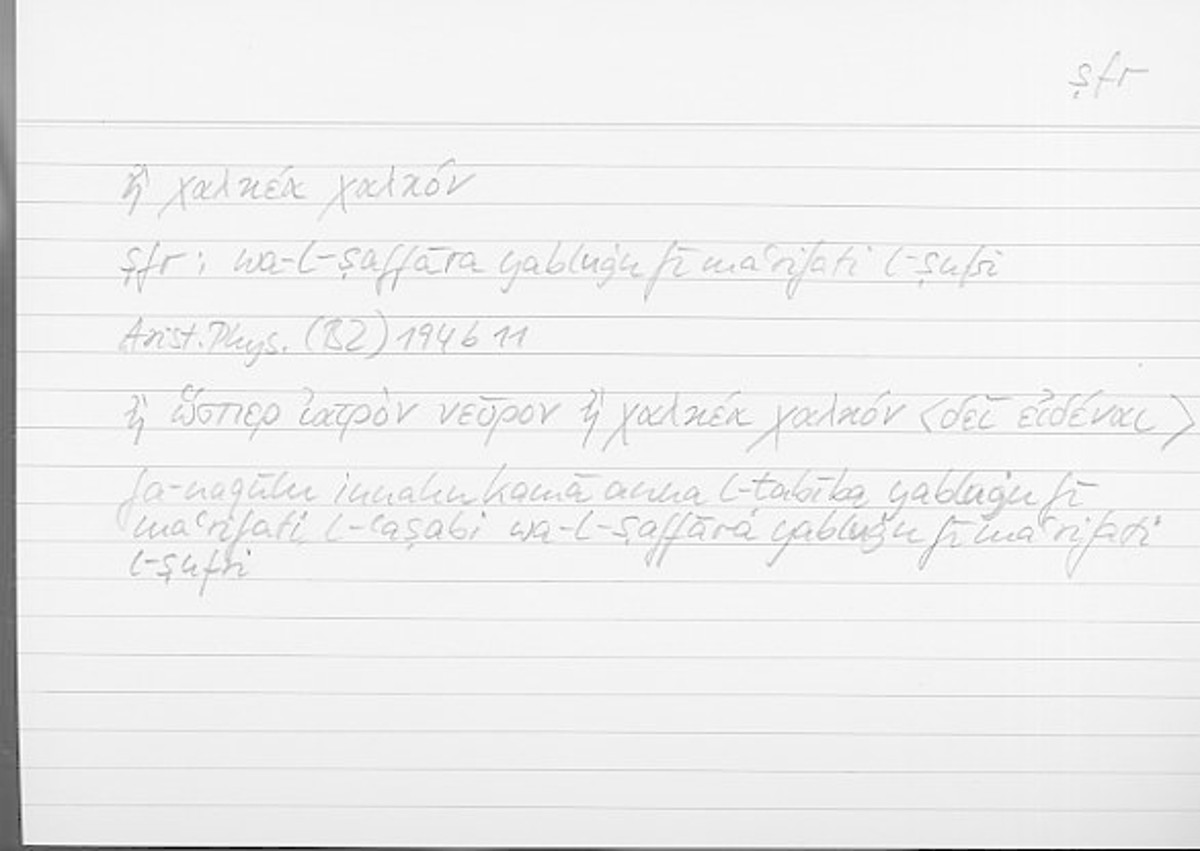 ṣfr
ἢ χαλκέα χαλκόν
ṣfr: wa-l-ṣaffāra yabluġu fī maʿrifati l-ṣufri
Arist. Phys. (B2) 194 b 11
ἢ ὥσπερ ἰατρὸν νεῦρον ἢ χαλκέα χαλκόν <δεῖ εἰδέναι>
fa-naqūlu innahu kamā anna l-ṭabība yabluġu fī
maʿrifati l-ʿaṣabi wa-l-ṣaffāra yabluġu fī maʿrifati
l-ṣufri